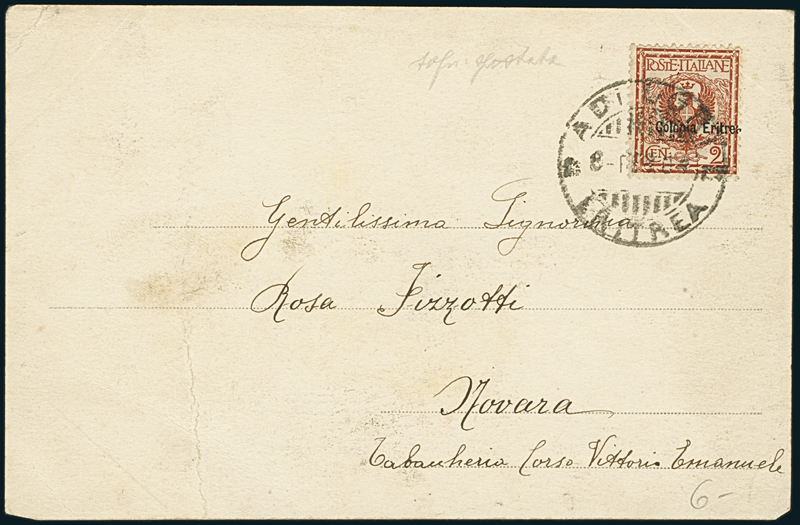 POSTE·ITALIANE
Colonia Eritrea
CEN. 2
ADI UGRI
8-
ERITREA
Gentilissima Signorina
Rosa Fizzotti
Novara
Tabaccheria Corso Vittorio Emanuele
6-